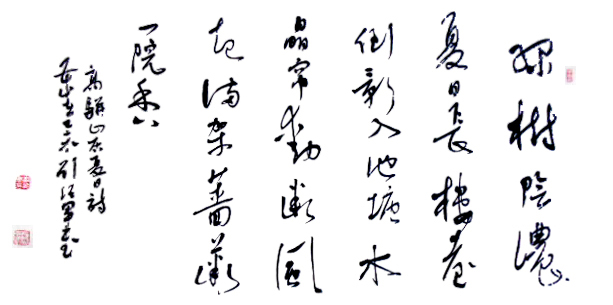 綠樹陰濃
夏日長樓臺
倒影入池塘水
晶帘動微風
起滿架薔薇
一院香
高駢山居夏日詩